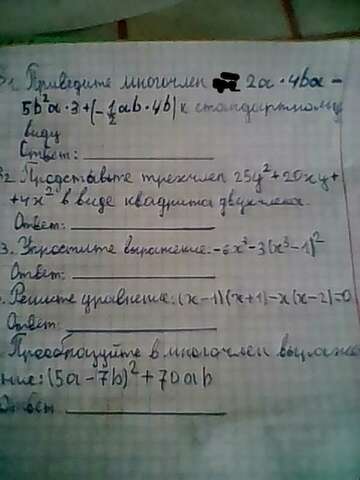 1. Приведите многочлен 2a · 4ba -
5b²a · 3 + (-1/2 ab · 4b) к стандартному
виду
Ответ:
2. Представьте трехчлен 25y² + 20xy +
+ 4x² в виде квадрата двухчлена.
Ответ:
3. Упростите выражение: -6x³ - 3(x³ - 1)²
Ответ:
. Решите уравнение: (x - 1)(x + 1) - x(x - 2) = 0
Ответ:
Преобразуйте в многочлен выраже
ние: (5a - 7b)² + 70ab
Ответ